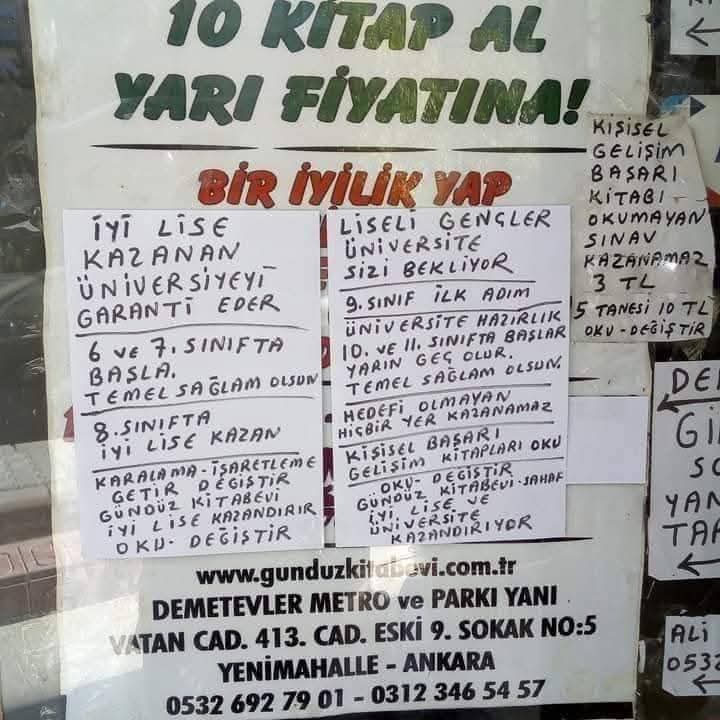 10 KİTAP AL
YARI FİYATINA!
BİR İYİLİK YAP
İYİ LİSE
KAZANAN
ÜNİVERSİYEYİ
GARANTİ EDER
6 VE 7. SINIFTA
BAŞLA.
TEMEL SAĞLAM OLSUN
8. SINIFTA
İYİ LİSE KAZAN
KARALAMA-İŞARETLEME
GETİR DEĞİŞTİR
GÜNDÜZ KİTABEVİ
İYİ LİSE KAZANDIRIR
OKU-DEĞİŞTİR
LİSELİ GENÇLER
ÜNİVERSİTE
SİZİ BEKLİYOR
9. SINIF İLK ADIM
ÜNİVERSİTE HAZIRLIK
10. VE 11. SINIFTA BAŞLAR
YARIN GEÇ OLUR.
TEMEL SAĞLAM OLSUN.
HEDEFİ OLMAYAN
HİÇBİR YER KAZANAMAZ
KİŞİSEL BAŞARI
GELİŞİM KİTAPLARI OKU
OKU-DEĞİŞTİR
GÜNDÜZ KİTABEVİ-SAHAF
İYİ LİSE VE
ÜNİVERSİTE
KAZANDIRIYOR
KİŞİSEL
GELİŞİM
BAŞARI
KİTABI
OKUMAYAN
SINAV
KAZANAMAZ
3 TL
5 TANESİ 10 TL
OKU-DEĞİŞTİR
www.gunduzkitabevi.com.tr
DEMETEVLER METRO ve PARKI YANI
VATAN CAD. 413. CAD. ESKİ 9. SOKAK NO:5
YENİMAHALLE - ANKARA
0532 692 79 01 - 0312 346 54 57
ALİ
0532